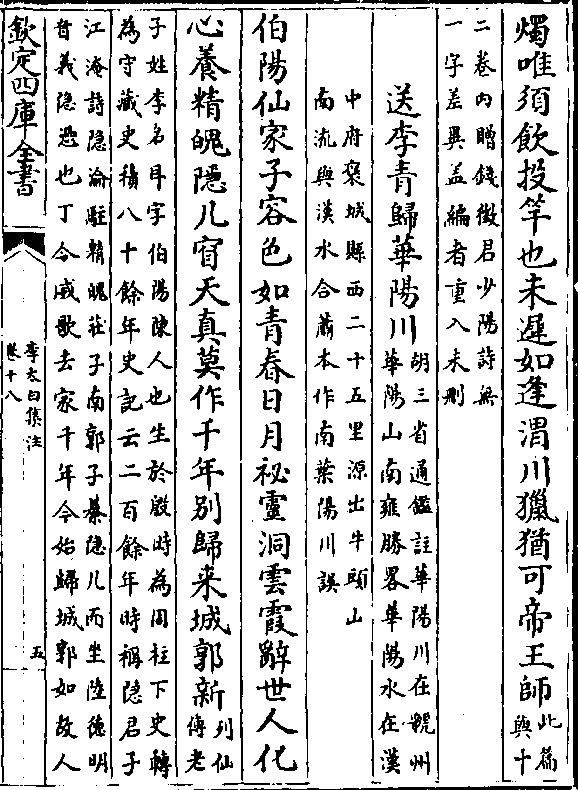 燭唯須飲投竿也未遲如逢渭川獵猶可帝王師此篇與十
二卷内贈錢徵君少陽詩無
一字差異盖編者重入未刪
送李青歸華陽川
胡三省通鑑註華陽川在虢州
華陽山南雍勝畧華陽水在漢
中府褒城縣西二十五里源出牛頭山
南流與漢水合蕭本作南葉陽川誤
伯陽仙家子容色如青春日月祕靈洞雲霞辭世人化
心養精魄隱几窅天真莫作千年別歸来城郭新列仙傳老
子姓李名耳字伯陽陳人也生於殷時為周柱下史轉
為守藏史積八十餘年史記云二百餘年時稱隠君子
江淹詩隠淪駐精魄莊子南郭子綦隠几而坐陸徳明
音義隠憑也丁令威歌去家千年今始歸城郭如故人
欽定四庫全書
李太白集注
卷十八
五